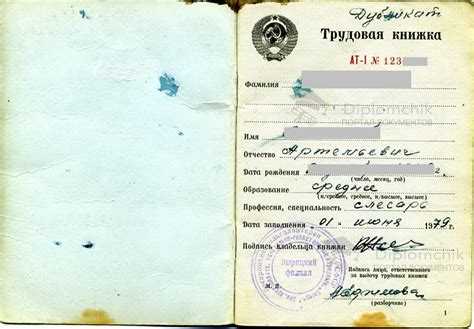 Дубликат
Трудовая книжка
АТ-I № 123
Фамилия
Diplomchik
ПОРТАЛ ДОКУМЕНТОВ
Имя
Отчество Артемьевич
Дата рождения
(число, месяц, год)
Образование среднее
(н/среднее, среднее, н/высшее, высшее)
Профессия, специальность слесарь
Дата заполнения „01" июня 1979 г.
Подпись владельца книжки
Diplomchik
Подпись лица, ответственного
за выдачу трудовых книжек
М. П.
(разборчиво)
филиал
1